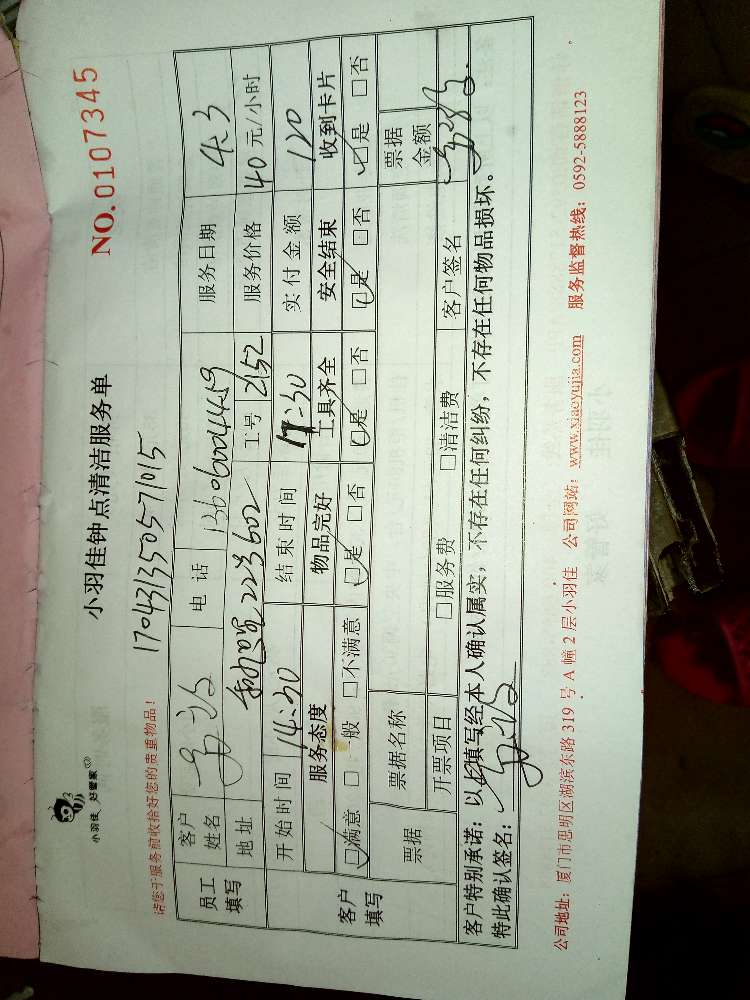 小羽佳 好管家
小羽佳钟点清洁服务单
NO.0107345
请您于服务前收拾好您的贵重物品！
170431350571015
员工填写 客户姓名 电话 服务日期 4.3
地址 223602 工号 2152 服务价格 40 元/小时
客户填写 开始时间 14:30 结束时间 17:30 实付金额 120
服务态度 物品完好 工具齐全 安全结束 收到卡片
☑满意 □一般 □不满意 ☑是 □否 ☑是 □否 ☑是 □否 ☑是 □否
票据 票据名称 票据金额
开票项目 □服务费 □清洁费 客户签名
客户特别承诺：以上填写经本人确认属实，不存在任何纠纷，不存在任何物品损坏。
特此确认签名：
公司地址：厦门市思明区湖滨东路 319 号 A 幢 2 层小羽佳 公司网站：www.xiaoyujia.com 服务监督热线：0592-5888123